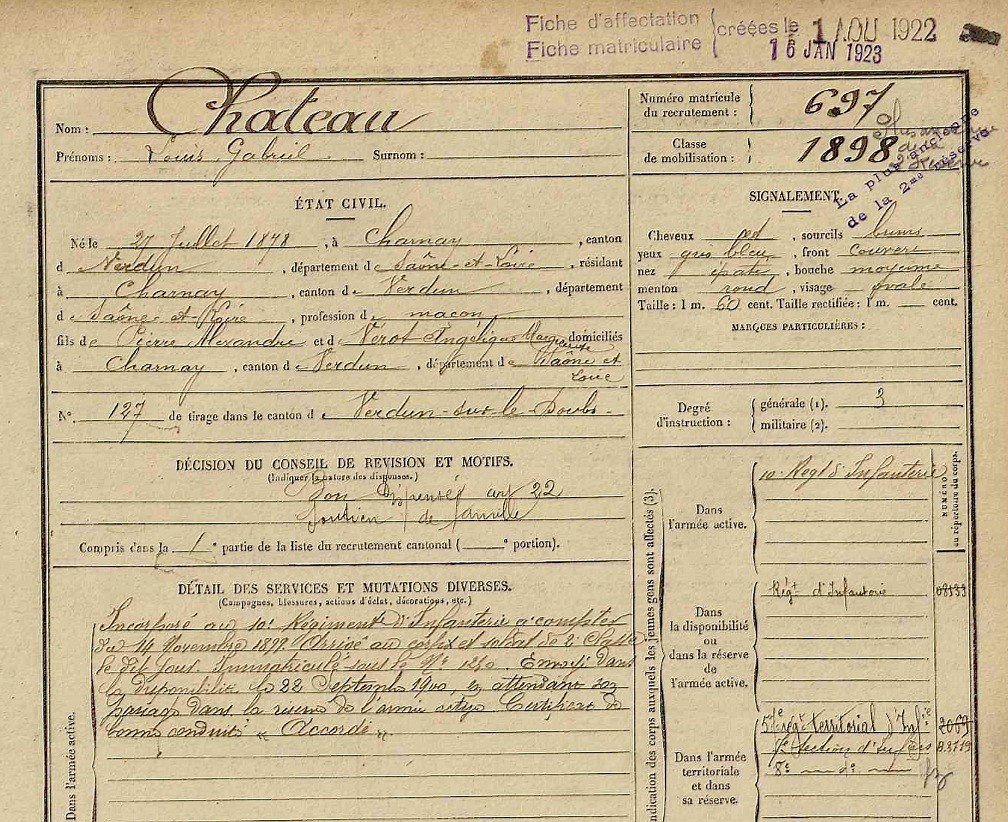 Fiche d'affectation
Fiche matriculaire
créées le 1 AOU 1922
16 JAN 1923
Nom : Chateau
Prénoms : Louis Gabriel Surnom :
Numéro matricule du recrutement : 697
Classe de mobilisation : 1898
La plus ancienne
de la 2me réserve
ÉTAT CIVIL.
Né le 27 Juillet 1878, à Charnay, canton
d Verdun, département de Saône-et-Loire, résidant
à Charnay, canton de Verdun, département
de Saône-et-Loire, profession de maçon
fils de Pierre Alexandre et de Vérot Angélique Marguerite domiciliés
à Charnay, canton de Verdun, département de Saône et
Loire
N° 127 de tirage dans le canton de Verdun-sur-le-Doubs.
SIGNALEMENT.
Cheveux , sourcils bruns
yeux gris bleu, front couvert
nez épaté, bouche moyenne
menton rond, visage ovale
Taille : 1 m. 60 cent. Taille rectifiée : 1 m. cent.
MARQUES PARTICULIÈRES :
Degré d'instruction :
générale (1). 3
militaire (2).
DÉCISION DU CONSEIL DE REVISION ET MOTIFS.
(Indiquer la nature des dispenses.)
Bon dispensé art 22
soutien de famille
Compris dans la 1e partie de la liste du recrutement cantonal ( e portion).
DÉTAIL DES SERVICES ET MUTATIONS DIVERSES.
(Campagnes, blessures, actions d'éclat, décorations, etc.)
Incorporé au 10e Régiment d'Infanterie à compter
du 14 Novembre 1899. Arrivé au corps et soldat de 2e Classe
le dit jour. Immatriculé sous le N° 1230. Envoyé dans
la disponibilité le 22 Septembre 1900, en attendant son
passage dans la réserve de l'armée active. Certificat de
bonne conduite « Accordé »
Dans l'armée active.
Indication des corps auxquels les jeunes gens sont affectés (3).
NUMÉRO
au répertoire du corps.
Dans
l'armée active.
10e Régt d'Infanterie
Dans
la disponibilité
ou
dans la réserve
de
l'armée active.
Régt d'Infanterie
Dans l'armée
territoriale
et dans
sa réserve.
territorial d'Infie
Section d'
8e